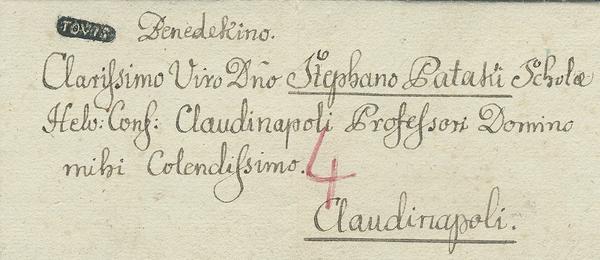 TOVIS Benedekino.
Clarissimo Viro Dño Stephano Pataki Scholæ
Helv: Conf: Claudinapoli Professori Domino
mihi Colendissimo.
4
Claudinapoli.